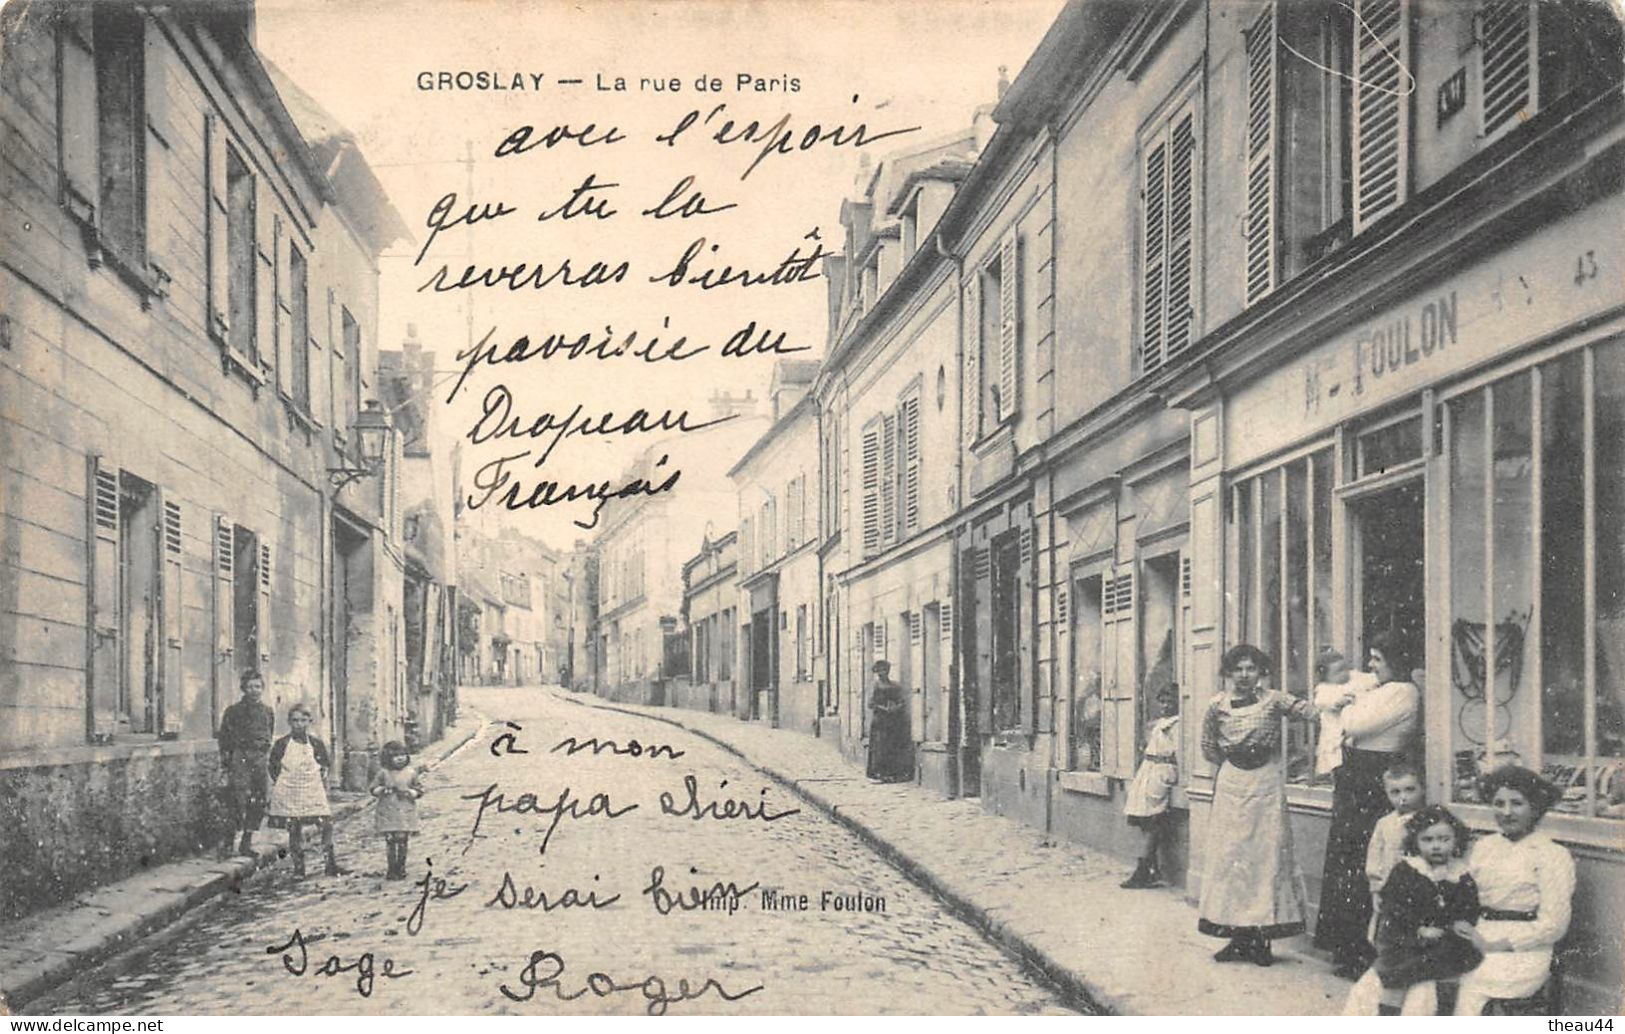 GROSLAY — La rue de Paris
avec l'espoir
que tu la
reverras bientôt
pavoisée du
Drapeau
Français
Mme FOULON
43
à mon
papa chéri
je serai bien
Imp. Mme Foulon
Sage
Roger
delcampe.net
theau44